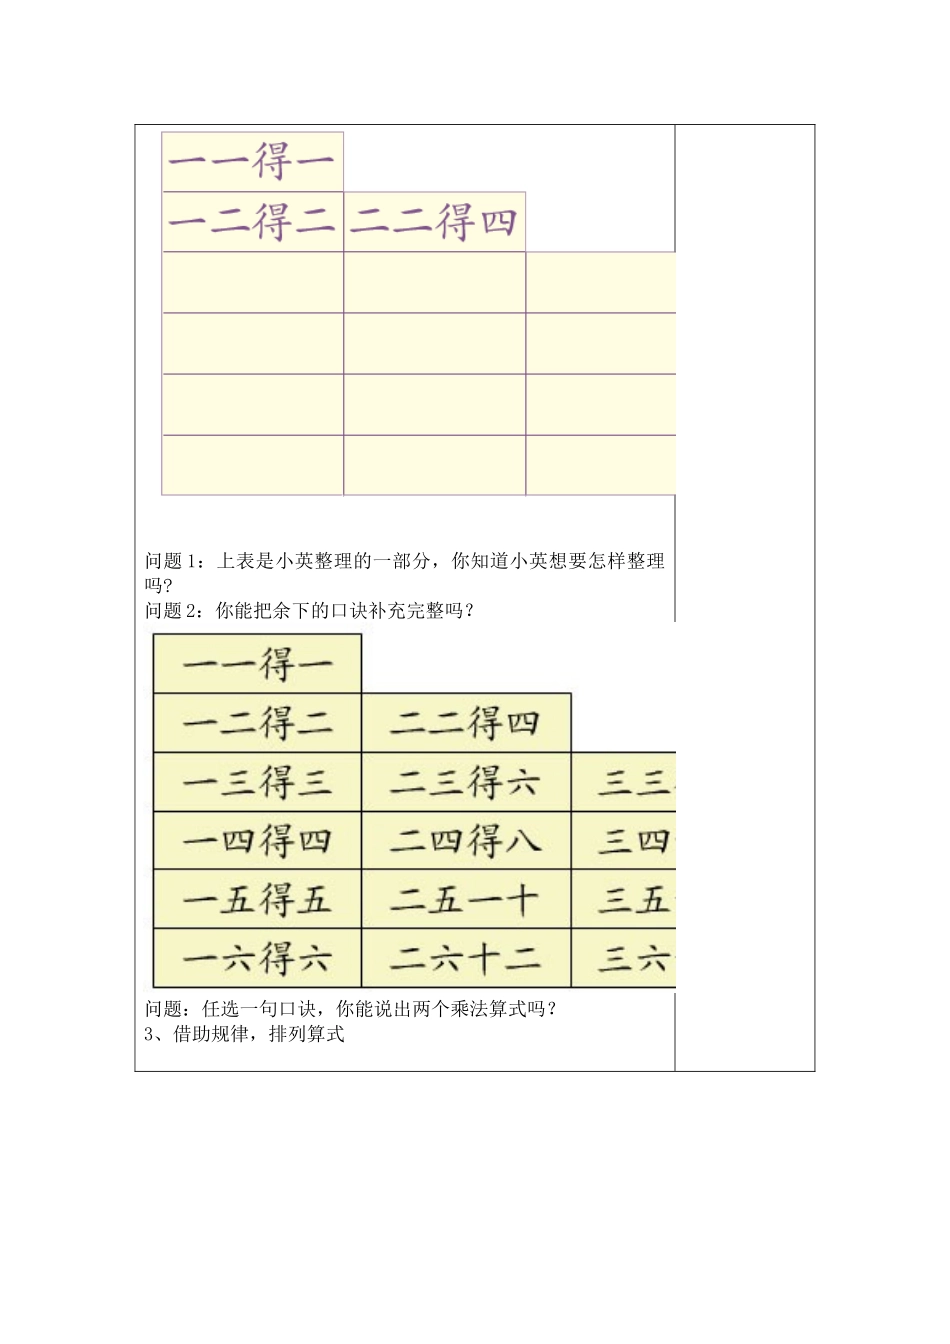 一一得一
一二得二 二二得四
问题 1：上表是小英整理的一部分，你知道小英想要怎样整理
吗？
问题 2：你能把余下的口诀补充完整吗？
一一得一
一二得二 二二得四
一三得三 二三得六 三三
一四得四 二四得八 三四
一五得五 二五一十 三五
一六得六 二六十二 三六
问题：任选一句口诀，你能说出两个乘法算式吗？
3、借助规律，排列算式